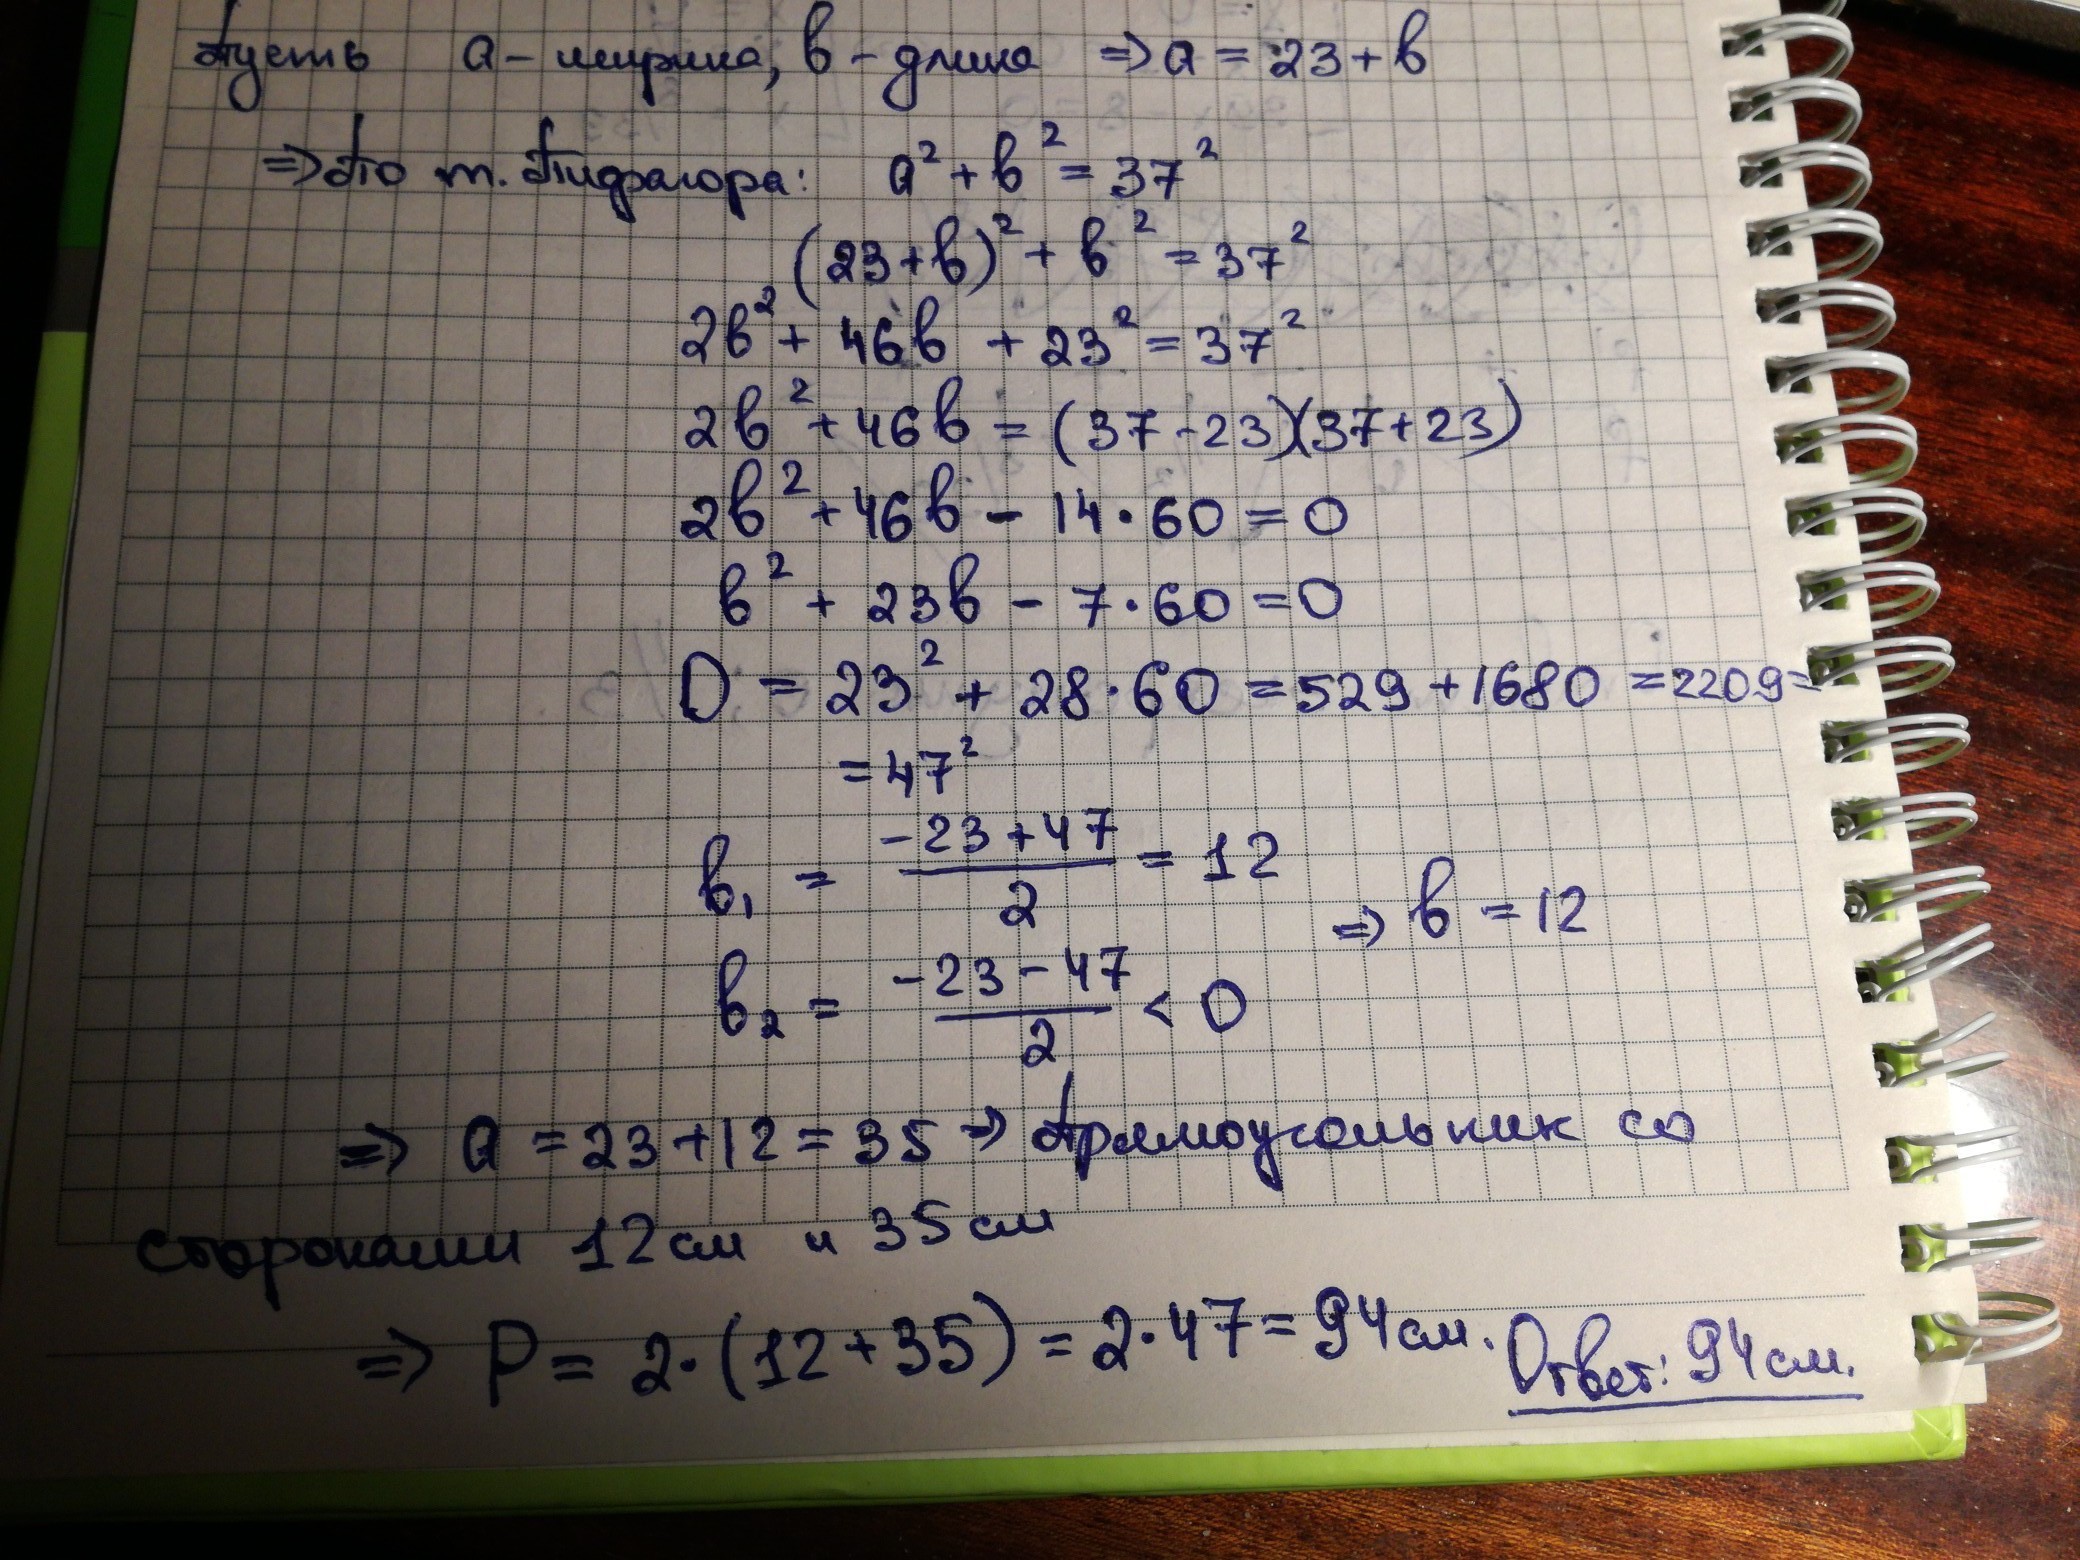 Пусть а - ширина, в - длина ⇒ а = 23 + в
⇒ По т. Пифагора: а² + в² = 37²
(23+в)² + в² = 37²
2в² + 46в + 23² = 37²
2в² + 46в = (37-23)(37+23)
2в² + 46в - 14·60 = 0
в² + 23в - 7·60 = 0
D = 23² + 28·60 = 529 + 1680 = 2209 =
= 47²
в₁ = (-23+47)/2 = 12
⇒ в = 12
в₂ = (-23-47)/2 < 0
⇒ а = 23+12 = 35 ⇒ Прямоугольник со
сторонами 12 см и 35 см
⇒ P = 2·(12+35) = 2·47 = 94 см. Ответ: 94 см.